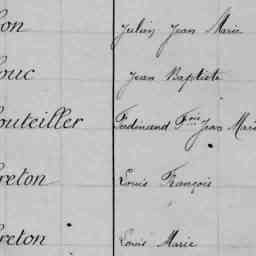 on Julien Jean Marie
ouc Jean Baptiste
outeiller Ferdinand Fois Jean Marie
reton Louis François
reton Louis Marie